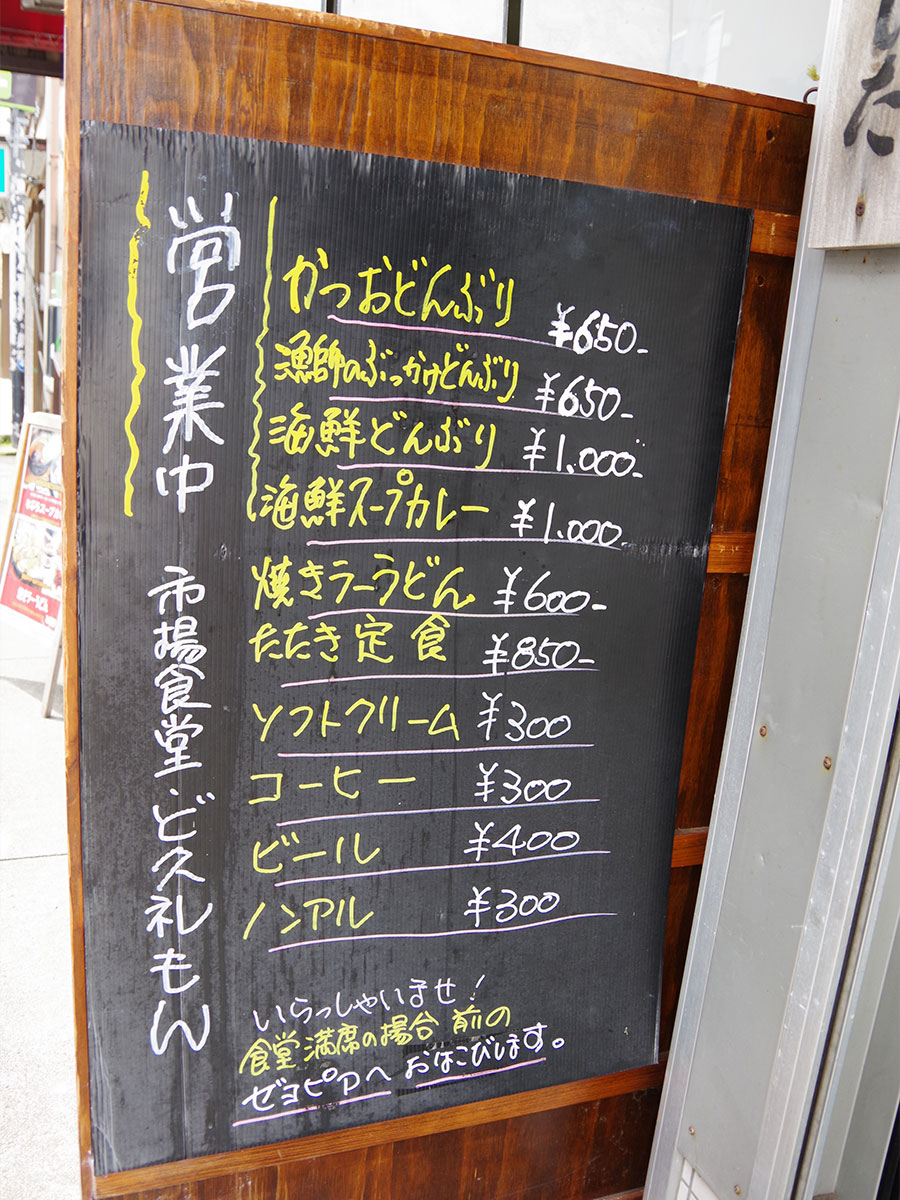 営業中 市場食堂・ど久礼もん
かつおどんぶり ¥650-
漁師のぶっかけどんぶり ¥650-
海鮮どんぶり ¥1,000-
海鮮スープカレー ¥1,000-
焼きラーうどん ¥600-
たたき定食 ¥850-
ソフトクリーム ¥300
コーヒー ¥300
ビール ¥400
ノンアル ¥300
いらっしゃいませ!
食堂満席の場合 前の
ぜヨピアへ おはこびします。
した